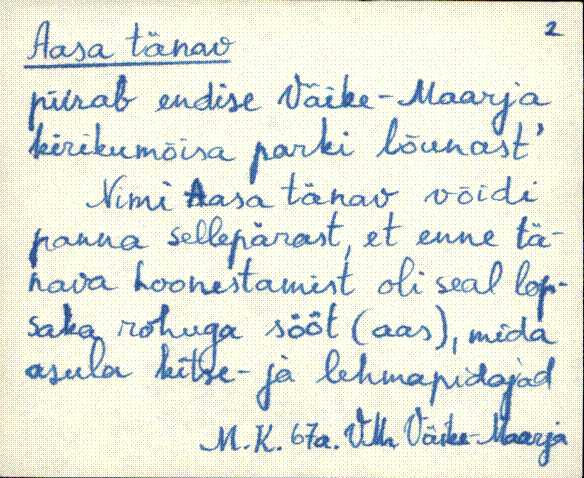 2
Aasa tänav
piirab endise Väike-Maarja
kirikumõisa parki lõunast'
Nimi Aasa tänav võidi
panna sellepärast, et enne tä-
nava hoonestamist oli seal lop-
saka rohuga sööt (aas), mida
asula kitse- ja lehmapidajad
M.K. 67a. VMr, Väike-Maarja